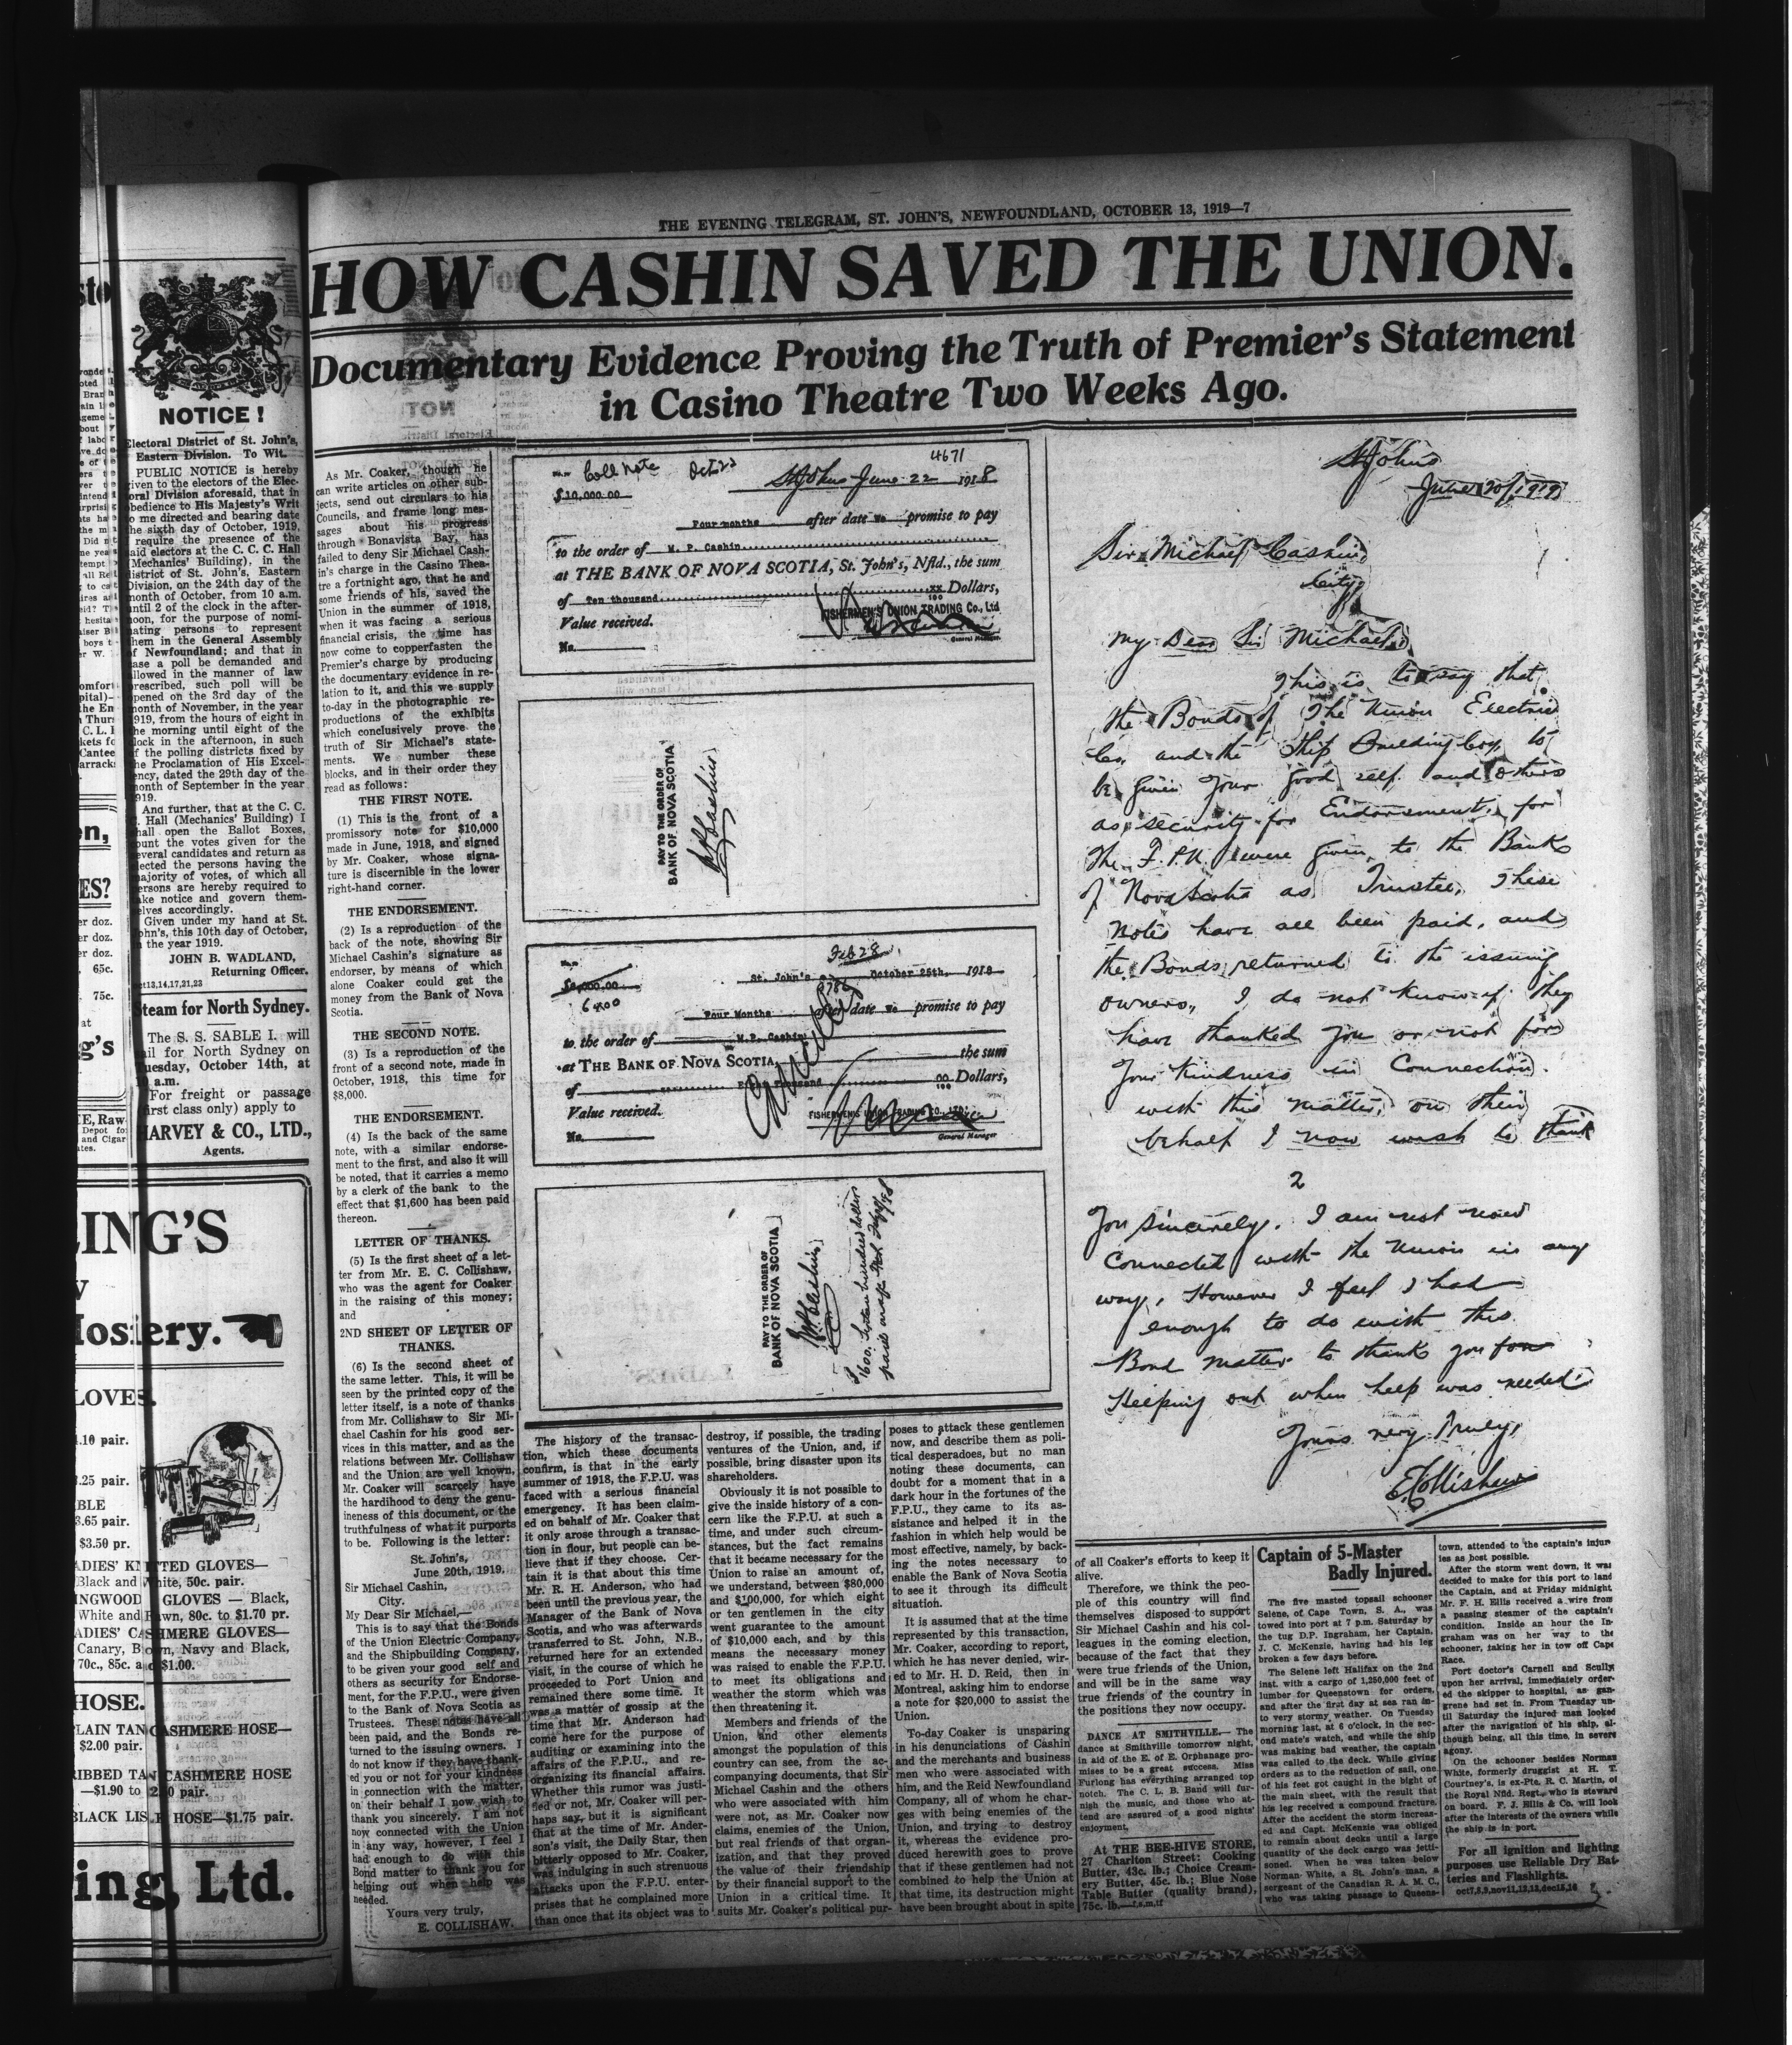 THE EVENING TELEGRAM, ST. JOHN'S, NEWFOUNDLAND, OCTOBER 13, 1919—7
HOW CASHIN SAVED THE UNION.
Documentary Evidence Proving the Truth of Premier's Statement
in Casino Theatre Two Weeks Ago.
NOTICE!
Electoral District of St. John's,
Eastern Division. To Wit.
PUBLIC NOTICE is hereby
given to the electors of the Elec-
oral Division aforesaid, that in
obedience to His Majesty's Writ
to me directed and bearing date
the sixth day of October, 1919,
require the presence of the
said electors at the C. C. C. Hall
(Mechanics' Building), in the
district of St. John's, Eastern
Division, on the 24th day of the
month of October, from 10 a.m.
until 2 of the clock in the after-
noon, for the purpose of nomi-
nating persons to represent
them in the General Assembly
of Newfoundland; and that in
case a poll be demanded and
allowed in the manner of law
prescribed, such poll will be
opened on the 3rd day of the
month of November, in the year
1919, from the hours of eight in
the morning until eight of the
clock in the afternoon, in such
of the polling districts fixed by
the Proclamation of His Excel-
ency, dated the 29th day of the
month of September in the year
1919.
And further, that at the C. C.
C. Hall (Mechanics' Building) I
shall open the Ballot Boxes,
count the votes given for the
several candidates and return as
elected the persons having the
majority of votes, of which all
persons are hereby required to
take notice and govern them-
selves accordingly.
Given under my hand at St.
John's, this 10th day of October,
in the year 1919.
JOHN B. WADLAND,
Returning Officer.
oct13,14,17,21,23
Steam for North Sydney.
The S. S. SABLE I. will
sail for North Sydney on
Tuesday, October 14th, at
a.m.
For freight or passage
(first class only) apply to
HARVEY & CO., LTD.,
Agents.
ING'S
Hosiery.
GLOVES.
.10 pair.
.25 pair.
3.65 pair.
$3.50 pr.
LADIES' KNITTED GLOVES—
Black and White, 50c. pair.
RINGWOOD GLOVES — Black,
White and Fawn, 80c. to $1.70 pr.
LADIES' CASHMERE GLOVES—
Canary, Brown, Navy and Black,
70c., 85c. and $1.00.
HOSE.
PLAIN TAN CASHMERE HOSE—
$2.00 pair.
RIBBED TAN CASHMERE HOSE
—$1.90 to pair.
BLACK LISLE HOSE—$1.75 pair.
ing, Ltd.
As Mr. Coaker, though he
can write articles on other sub-
jects, send out circulars to his
Councils, and frame long mes-
sages about his progress
through Bonavista Bay, has
failed to deny Sir Michael Cash-
in's charge in the Casino Thea-
tre a fortnight ago, that he and
some friends of his, saved the
Union in the summer of 1918,
when it was facing a serious
financial crisis, the time has
now come to copperfasten the
Premier's charge by producing
the documentary evidence in re-
lation to it, and this we supply
to-day in the photographic re-
productions of the exhibits
which conclusively prove the
truth of Sir Michael's state-
ments. We number these
blocks, and in their order they
read as follows:
THE FIRST NOTE.
(1) This is the front of a
promissory note for $10,000
made in June, 1918, and signed
by Mr. Coaker, whose signa-
ture is discernible in the lower
right-hand corner.
THE ENDORSEMENT.
(2) Is a reproduction of the
back of the note, showing Sir
Michael Cashin's signature as
endorser, by means of which
alone Coaker could get the
money from the Bank of Nova
Scotia.
THE SECOND NOTE.
(3) Is a reproduction of the
front of a second note, made in
October, 1918, this time for
$8,000.
THE ENDORSEMENT.
(4) Is the back of the same
note, with a similar endorse-
ment to the first, and also it will
be noted, that it carries a memo
by a clerk of the bank to the
effect that $1,600 has been paid
thereon.
LETTER OF THANKS.
(5) Is the first sheet of a let-
ter from Mr. E. C. Collishaw,
who was the agent for Coaker
in the raising of this money;
and
2ND SHEET OF LETTER OF
THANKS.
(6) Is the second sheet of
the same letter. This, it will be
seen by the printed copy of the
letter itself, is a note of thanks
from Mr. Collishaw to Sir Mi-
chael Cashin for his good ser-
vices in this matter, and as the
relations between Mr. Collishaw
and the Union are well known,
Mr. Coaker will scarcely have
the hardihood to deny the genu-
ineness of this document, or the
truthfulness of what it purports
to be. Following is the letter:
St. John's,
June 20th, 1919.
Sir Michael Cashin,
City.
My Dear Sir Michael,—
This is to say that the Bonds
of the Union Electric Company,
and the Shipbuilding Company,
to be given your good self and
others as security for Endorse-
ment, for the F.P.U., were given
to the Bank of Nova Scotia as
Trustees. These notes have all
been paid, and the Bonds re-
turned to the issuing owners. I
do not know if they have thank-
ed you or not for your kindness
in connection with the matter,
on their behalf I now wish to
thank you sincerely. I am not
now connected with the Union
in any way, however, I feel I
had enough to do with this
Bond matter to thank you for
helping out when help was
needed.
Yours very truly,
E. COLLISHAW.
Call Note Oct 22 4671
$10,000.00 St Johns June 22 1918
Four months after date We promise to pay
to the order of M. P. Cashin
at THE BANK OF NOVA SCOTIA, St. John's, Nfld., the sum
of Ten thousand xx/100 Dollars,
Value received. FISHERMEN'S UNION TRADING Co., Ltd
General Manager
No.
PAY TO THE ORDER OF
BANK OF NOVA SCOTIA
M P Cashin
Feb 28
$8,000.00 St. John's October 25th, 1918
6400
Four Months after date We promise to pay
to the order of M.P. Cashin
at THE BANK OF NOVA SCOTIA, the sum
of 00/100 Dollars,
Cancelled
Value received. FISHERMEN'S UNION TRADING CO., LTD.
General Manager
No.
PAY TO THE ORDER OF
BANK OF NOVA SCOTIA
M P Cashin
St Johns
June 20/1919
Sir Michael Cashin
City
My Dear Sir Michael,
This is to say that
the Bonds of The Union Electric
Co, and the Ship Building Coy, to
be given your good self and others
as security for Endorsement, for
The F.P.U. were given to the Bank
of Nova Scotia as Trustee, These
notes have all been paid, and
the Bonds returned to the issuing
owners, I do not know if they
have thanked you or not for
your kindness in Connection
with this matter, on their
behalf I now wish to thank
2
you sincerely. I am not now
Connected with the Union in any
way, However I feel I had
enough to do with this
Bond matter to thank you for
Helping out when help was needed
Yours very Truly,
E Collishaw
The history of the transac-
tion, which these documents
confirm, is that in the early
summer of 1918, the F.P.U. was
faced with a serious financial
emergency. It has been claim-
ed on behalf of Mr. Coaker that
it only arose through a transac-
tion in flour, but people can be-
lieve that if they choose. Cer-
tain it is that about this time
Mr. R. H. Anderson, who had
been until the previous year, the
Manager of the Bank of Nova
Scotia, and who was afterwards
transferred to St. John, N.B.,
returned here for an extended
visit, in the course of which he
proceeded to Port Union and
remained there some time. It
was a matter of gossip at the
time that Mr. Anderson had
come here for the purpose of
auditing or examining into the
affairs of the F.P.U., and re-
organizing its financial affairs.
Whether this rumor was justi-
fied or not, Mr. Coaker will per-
haps say, but it is significant
that at the time of Mr. Ander-
son's visit, the Daily Star, then
bitterly opposed to Mr. Coaker,
was indulging in such strenuous
attacks upon the F.P.U. enter-
prises that he complained more
than once that its object was to
destroy, if possible, the trading
ventures of the Union, and, if
possible, bring disaster upon its
shareholders.
Obviously it is not possible to
give the inside history of a con-
cern like the F.P.U. at such a
time, and under such circum-
stances, but the fact remains
that it became necessary for the
Union to raise an amount of,
we understand, between $80,000
and $100,000, for which eight
or ten gentlemen in the city
went guarantee to the amount
of $10,000 each, and by this
means the necessary money
was raised to enable the F.P.U.
to meet its obligations and
weather the storm which was
then threatening it.
Members and friends of the
Union, and other elements
amongst the population of this
country can see, from the ac-
companying documents, that Sir
Michael Cashin and the others
who were associated with him
were not, as Mr. Coaker now
claims, enemies of the Union,
but real friends of that organ-
ization, and that they proved
the value of their friendship
by their financial support to the
Union in a critical time. It
suits Mr. Coaker's political pur-
poses to attack these gentlemen
now, and describe them as poli-
tical desperadoes, but no man
noting these documents, can
doubt for a moment that in a
dark hour in the fortunes of the
F.P.U., they came to its as-
sistance and helped it in the
fashion in which help would be
most effective, namely, by back-
ing the notes necessary to
enable the Bank of Nova Scotia
to see it through its difficult
situation.
It is assumed that at the time
represented by this transaction,
Mr. Coaker, according to report,
which he has never denied, wir-
ed to Mr. H. D. Reid, then in
Montreal, asking him to endorse
a note for $20,000 to assist the
Union.
To-day Coaker is unsparing
in his denunciations of Cashin
and the merchants and business
men who were associated with
him, and the Reid Newfoundland
Company, all of whom he char-
ges with being enemies of the
Union, and trying to destroy
it, whereas the evidence pro-
duced herewith goes to prove
that if these gentlemen had not
combined to help the Union at
that time, its destruction might
have been brought about in spite
of all Coaker's efforts to keep it
alive.
Therefore, we think the peo-
ple of this country will find
themselves disposed to support
Sir Michael Cashin and his col-
leagues in the coming election,
because of the fact that they
were true friends of the Union,
and will be in the same way
true friends of the country in
the positions they now occupy.
DANCE AT SMITHVILLE.— The
dance at Smithville tomorrow night,
in aid of the E. of E. Orphanage pro-
mises to be a great success. Miss
Furlong has everything arranged top
notch. The C. L. B. Band will fur-
nish the music, and those who at-
tend are assured of a good nights'
enjoyment.
At THE BEE-HIVE STORE,
27 Charlton Street: Cooking
Butter, 43c. lb.; Choice Cream-
ery Butter, 45c. lb.; Blue Nose
Table Butter (quality brand),
75c. lb.—f,s,m,tf
Captain of 5-Master
Badly Injured.
The five masted topsail schooner
Selene, of Cape Town, S. A., was
towed into port at 7 p.m. Saturday by
the tug D.P. Ingraham, her Captain,
J. C. McKenzie, having had his leg
broken a few days before.
The Selene left Halifax on the 2nd
inst. with a cargo of 1,250,000 feet of
lumber for Queenstown for orders,
and after the first day at sea ran in-
to very stormy weather. On Tuesday
morning last, at 6 o'clock, in the sec-
ond mate's watch, and while the ship
was making bad weather, the captain
was called to the deck. While giving
orders as to the reduction of sail, one
of his feet got caught in the bight of
the main sheet, with the result that
his leg received a compound fracture.
After the accident the storm increas-
ed and Capt. McKenzie was obliged
to remain about decks until a large
quantity of the deck cargo was jetti-
soned. When he was taken below
Norman White, a St. John's man, a
sergeant of the Canadian R. A. M. C.,
who was taking passage to Queens-
town, attended to the captain's injur-
ies as best possible.
After the storm went down, it was
decided to make for this port to land
the Captain, and at Friday midnight
Mr. F. H. Ellis received a wire from
a passing steamer of the captain's
condition. Inside an hour the In-
graham was on her way to the
schooner, taking her in tow off Cape
Race.
Port doctor's Carnell and Scully
upon her arrival, immediately order-
ed the skipper to hospital, as gan-
grene had set in. From Tuesday un-
til Saturday the injured man looked
after the navigation of his ship, al-
though being, all this time, in severe
agony.
On the schooner besides Norman
White, formerly druggist at H. T.
Courtney's, is ex-Pte. R. C. Martin, of
the Royal Nfld. Regt., who is steward
on board. F. J. Ellis & Co. will look
after the interests of the owners while
the ship is in port.
For all ignition and lighting
purposes use Reliable Dry Bat-
teries and Flashlights.
oct7,8,9,nov11,12,13,dec15,16